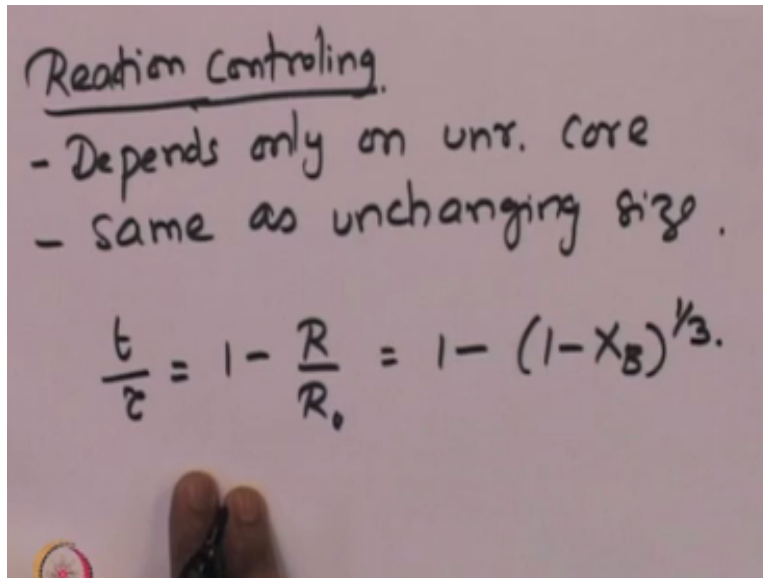 Reation Controling.
- Depends only on unr. core
- same as unchanging size.
t/τ = 1 - R/R₀ = 1 - (1-X_B)^{1/3}.